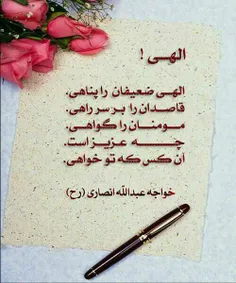 الهی !
الهی ضعیفان را پناهی،
قاصدان را بر سر راهی،
مومنان را گواهی،
چه عزیز است،
آن کس که تو خواهی،
خواجه عبدالله انصاری (رح)